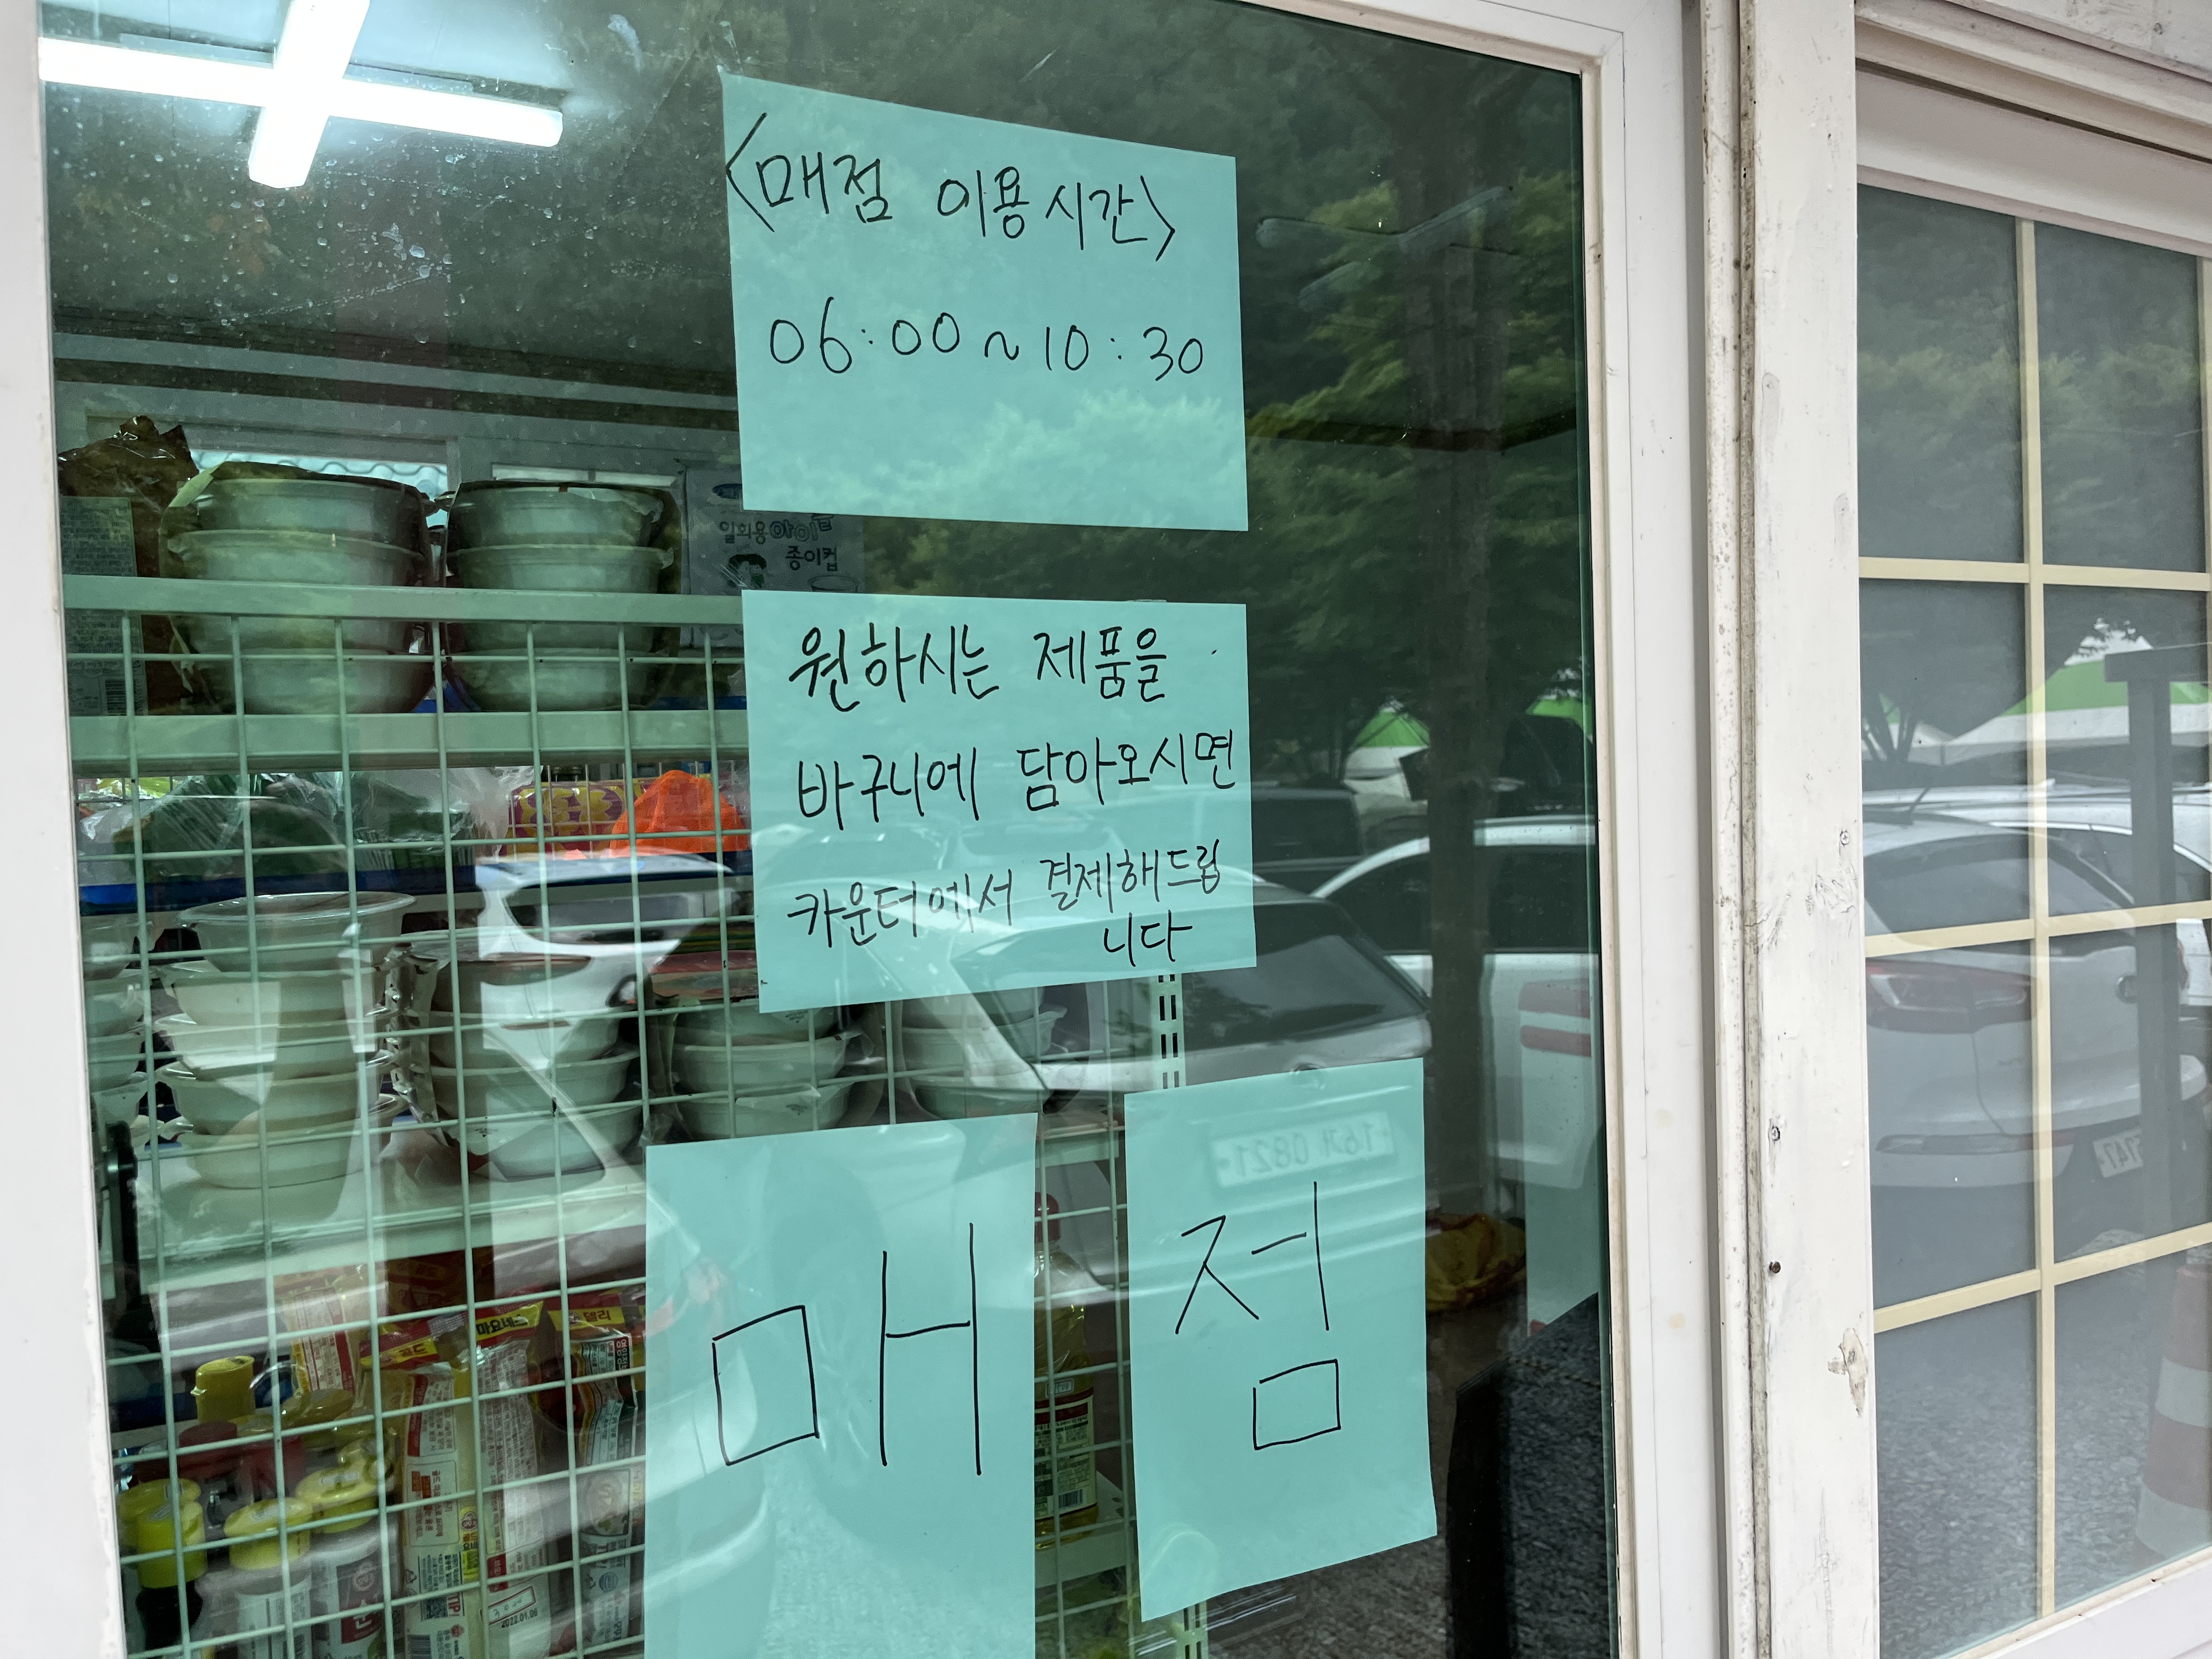 <매점 이용시간>
06:00 ~ 10:30
일회용 아이
종이컵
원하시는 제품을
바구니에 담아오시면
카운터에서 결제해드립
니다
매 점
마요네즈
골드
델리
2022.01.06